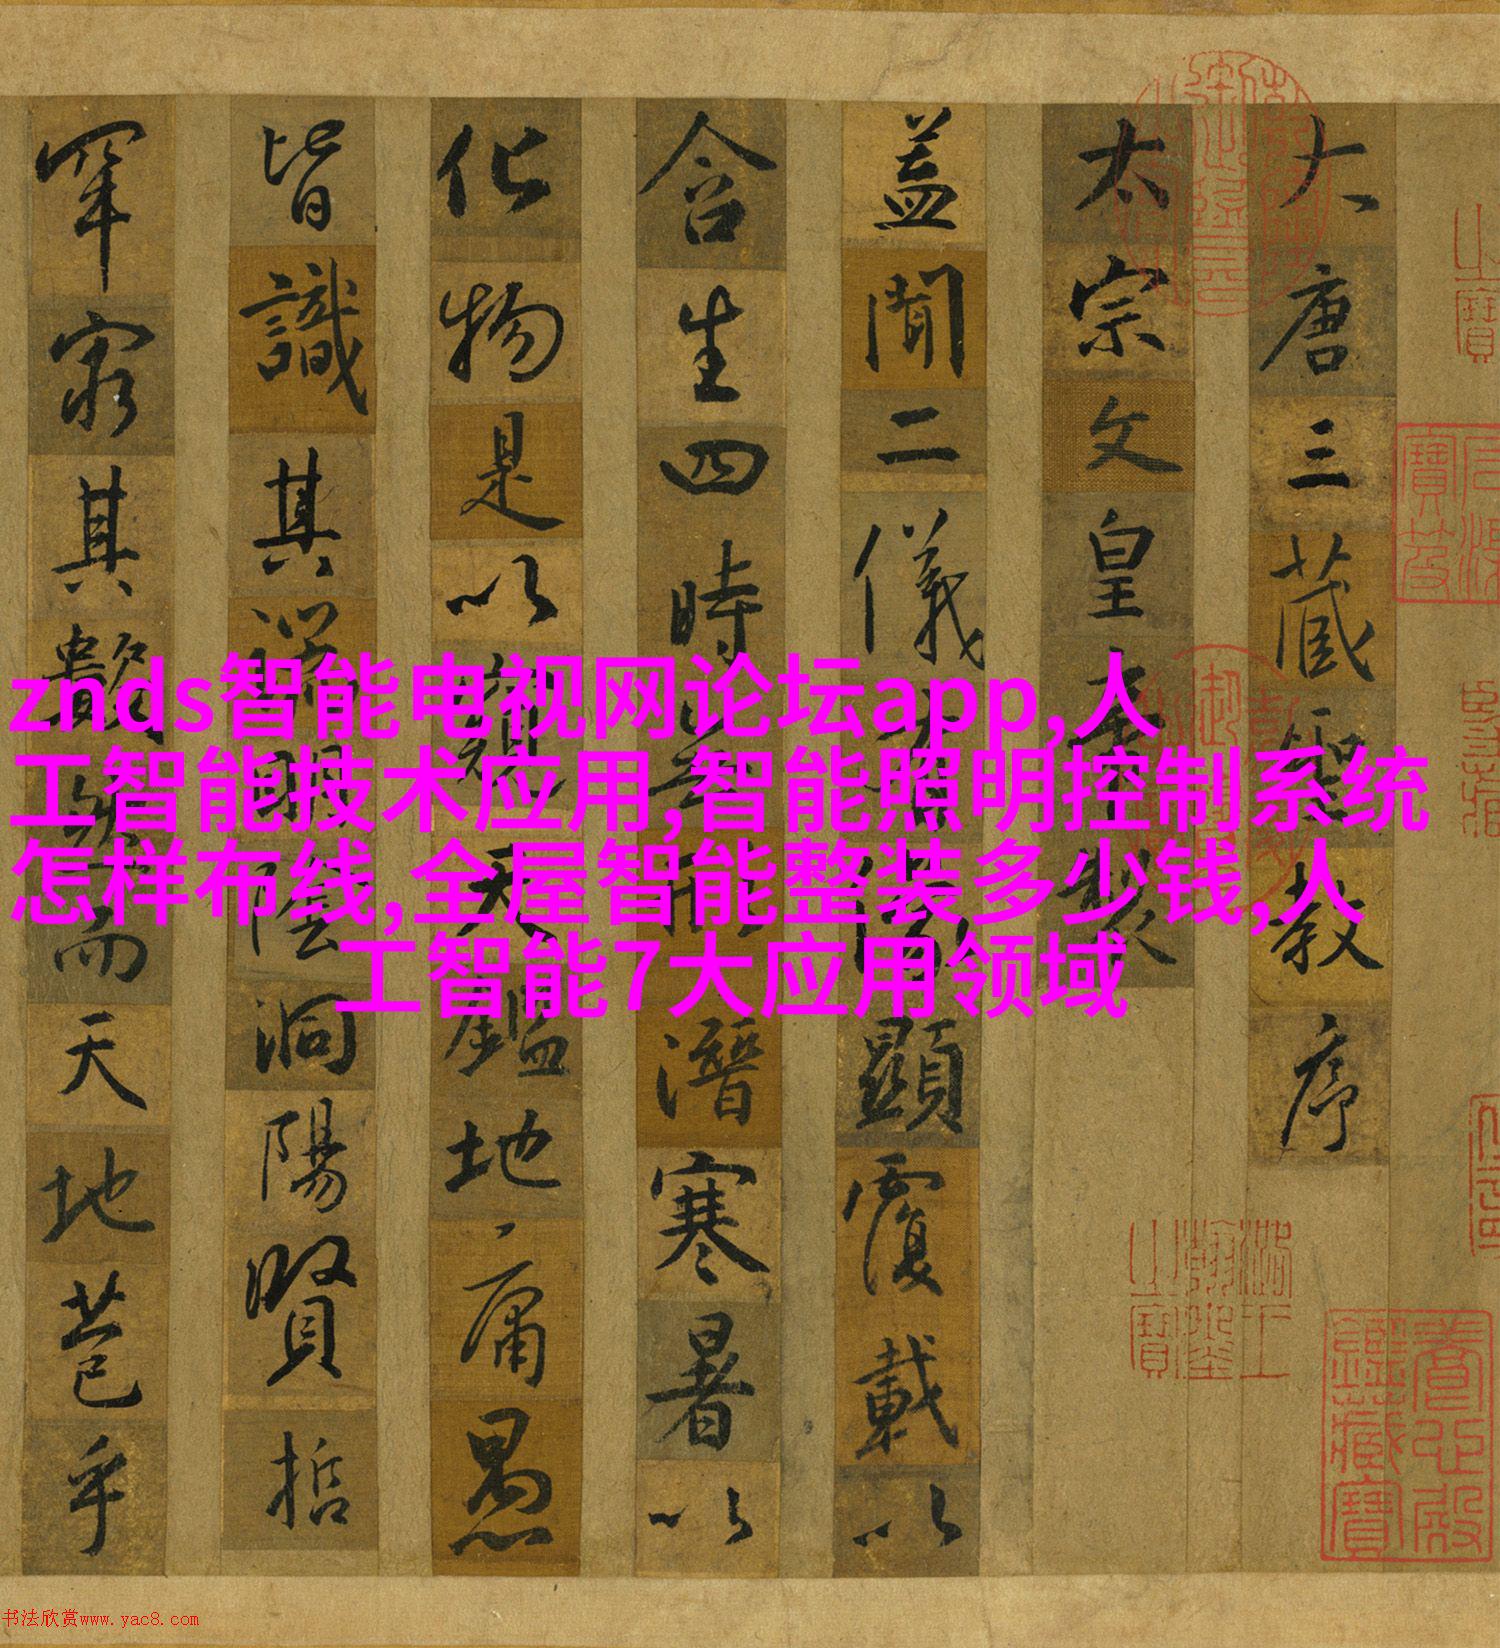 大唐三藏聖教序
太宗文皇帝製
盖聞二儀有像顯覆載以
含生四時無形潛寒暑以
化物是以窺天鑑地庸愚
皆識其端明陰洞陽賢哲
罕窮其數然而天地苞乎
znds智能电视网论坛app,人
工智能技术应用,智能照明控制系统
怎样布线,全屋智能整装多少钱,人
工智能7大应用领域
養心殿
鑑藏寶
书法欣赏www.yac8.com